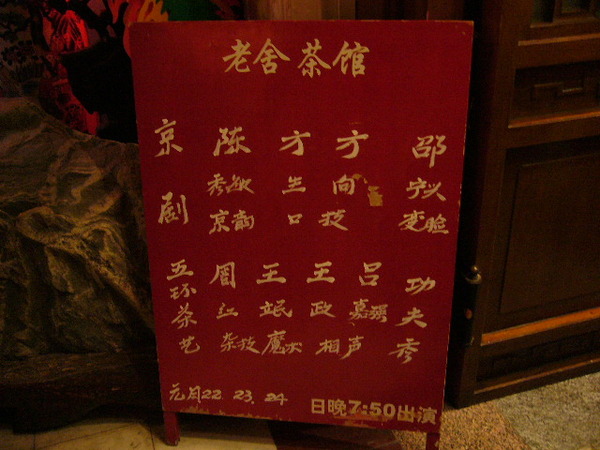 老舍茶馆
京剧
陈秀敏
京韵
方生
方向
口技
邵宁义
变脸
五环茶艺
周红
杂技
王珉
魔术
王政
吕嘉
相声
功夫秀
元月22.23.24
日晚7:50出演